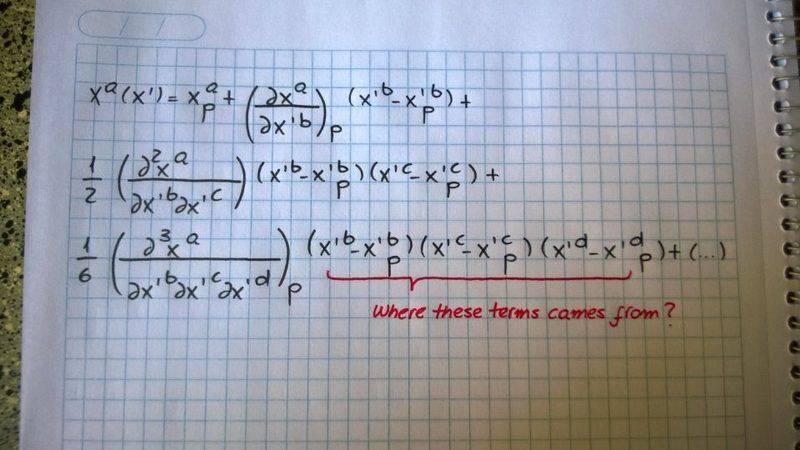 / /
xᵃ(x') = xᵃₚ + (∂xᵃ/∂x'ᵇ)ₚ (x'ᵇ - x'ᵇₚ) +
1/2 (∂²xᵃ/∂x'ᵇ∂x'ᶜ) (x'ᵇ - x'ᵇₚ)(x'ᶜ - x'ᶜₚ) +
1/6 (∂³xᵃ/∂x'ᵇ∂x'ᶜ∂x'ᵈ)ₚ (x'ᵇ - x'ᵇₚ)(x'ᶜ - x'ᶜₚ)(x'ᵈ - x'ᵈₚ) + (...)
Where these terms cames from?